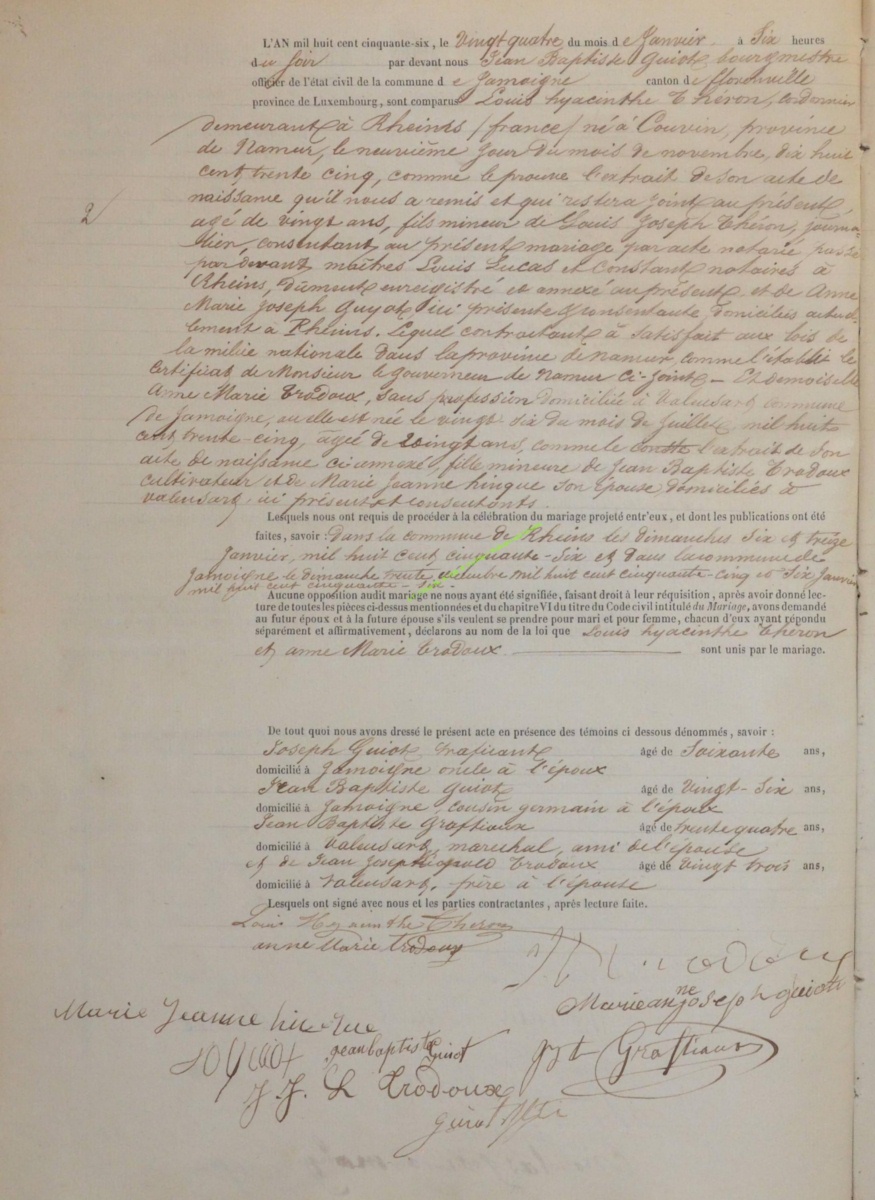 L'AN mil huit cent cinquante-six, le Vingt quatre du mois de Janvier à Six heures
du Soir par devant nous Jean Baptiste Guiot, bourgmestre
officier de l'état civil de la commune de Jamoigne canton de florenville
province de Luxembourg, sont comparus Louis hyacinthe Théron, cordonnier
demeurant à Rheims /france/ né à Couvin, province
de Namur, le neuvième jour du mois de novembre, dix huit
cent trente cinq, comme le prouve l'extrait de son acte de
naissance qu'il nous a remis et qui restera joint au présent,
2
agé de vingt ans, fils mineur de Louis Joseph Théron, journa-
-lier, consentant au présent mariage par acte notarié passé
par devant maîtres Louis Lucas et Constant notaires à
Rheims, dument enregistré et annexé au présent et de Anne
Marie Joseph Guyot, ici présente & consentante domiciliés actuel-
-lement à Rheims. Lequel contractant à satisfait aux lois de
la milice nationale dans la province de namur, comme l'établi le
certificat de Monsieur le gouverneur de Namur ci-joint - Et demoiselle
Anne Marie Trodoux, sans profession domiciliée à Valensart, commune
de Jamoigne, ou elle est née le vingt six du mois de Juillet, mil huit
cent trente-cinq, âgée de vingt ans, comme le l'extrait de son
acte de naissance ci annexé, fille mineure de Jean Baptiste Trodoux
cultivateur et de Marie Jeanne hinque son épouse domiciliés à
valensart, ici présent et consentants.
Lesquels nous ont requis de procéder à la célébration du mariage projeté entr'eux, et dont les publications ont été
faites, savoir : Dans la commune de Rheims les dimanches Six et treize
Janvier, mil huit cent cinquante-six et dans la commune de
Jamoigne le dimanche trente décembre mil huit cent cinquante-cinq et Six Janvier
mil huit cent cinquante-six.
Aucune opposition audit mariage ne nous ayant été signifiée, faisant droit à leur réquisition, après avoir donné lec-
ture de toutes les pièces ci-dessus mentionnées et du chapitre VI du titre du Code civil intitulé du Mariage, avons demandé
au futur époux et à la future épouse s'ils veulent se prendre pour mari et pour femme, chacun d'eux ayant répondu
séparément et affirmativement, déclarons au nom de la loi que Louis hyacinthe Théron
et anne Marie Trodoux sont unis par le mariage.
De tout quoi nous avons dressé le présent acte en présence des témoins ci dessous dénommés, savoir :
Joseph Guiot, traficant âgé de Soixante ans,
domicilié à Jamoigne oncle à l'époux
Jean Baptiste Guiot âgé de Vingt-Six ans,
domicilié à Jamoigne, cousin germain à l'époux
Jean Baptiste Graftiaux âgé de trente quatre ans,
domicilié à Valensart, marechal, ami de l'épouse
et de Jean Joseph Trodoux âgé de Vingt trois ans,
domicilié à Valensart, frère à l'épouse
Lesquels ont signé avec nous et les parties contractantes, après lecture faite.
Louis Hyacinthe Theron
anne Marie trodoux
Marie anne joseph guiot
Marie Jeanne hinque
jean baptiste Guiot
Graftiaux
J. J. L Trodoux
guiot